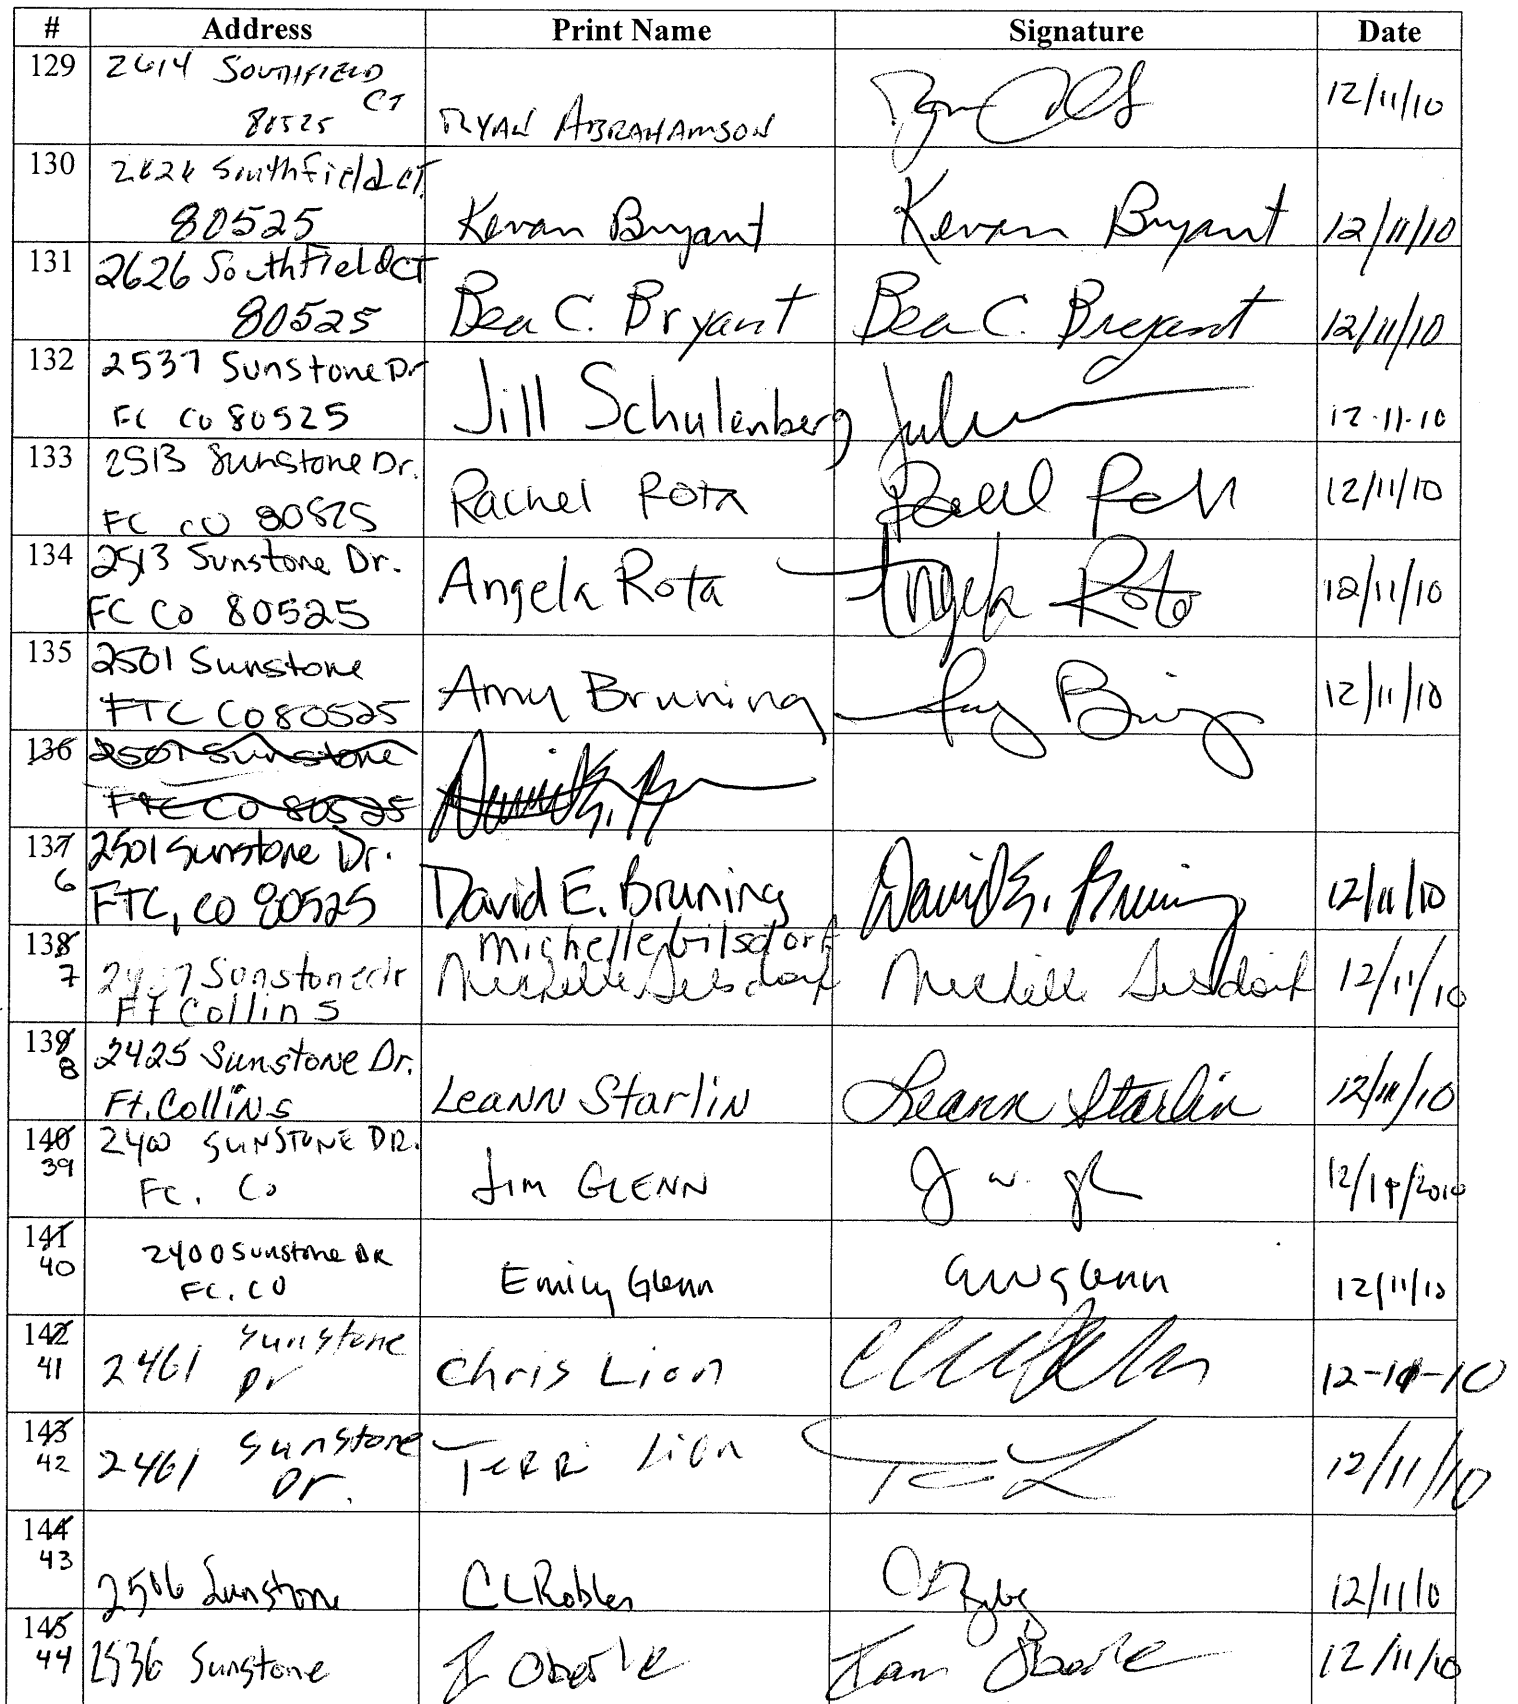 # Address Print Name Signature Date
129 2614 SOUTHFIELD
CT
80525 RYAN ABRAHAMSON 12/11/10
130 2626 Southfield CT
80525 Kevan Bryant Kevan Bryant 12/11/10
131 2626 Southfield CT
80525 Bea C. Bryant Bea C. Bryant 12/11/10
132 2537 Sunstone Dr
FC CO 80525 Jill Schulenberg 12-11-10
133 2513 Sunstone Dr.
FC CO 80525 Rachel Rota 12/11/10
134 2513 Sunstone Dr.
FC CO 80525 Angela Rota Angela Rota 12/11/10
135 2501 Sunstone
FTC CO 80525 Amy Bruning 12/11/10
136 2501 Sunstone
FTC CO 80525 David E.
137 2501 Sunstone Dr.
6 FTC, CO 80525 David E. Bruning David E. Bruning 12/11/10
138 Michelle Gilsdorf
7 Sunstone cir Michelle Gilsdorf Michelle Gilsdorf 12/11/10
Ft Collins
139 2425 Sunstone Dr.
8 Ft. Collins LeANN StarliN Leann Starlin 12/11/10
140 2400 SUNSTONE DR.
39 FC. Co JIM GLENN 12/11/2010
141 2400 Sunstone DR
40 FC. CO Emily Glenn 12/11/10
142 Sunstone
41 2461 Dr Chris Lion 12-11-10
143 Sunstone
42 2461 Dr. TERRI Lion 12/11/10
144
43 2506 Sunstone CL Robles 12/11/0
145
44 2536 Sunstone J Oberle Oberle 12/11/10